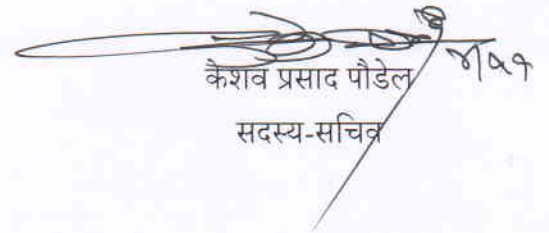 केशव प्रसाद पौडेल
सदस्य-सचिव